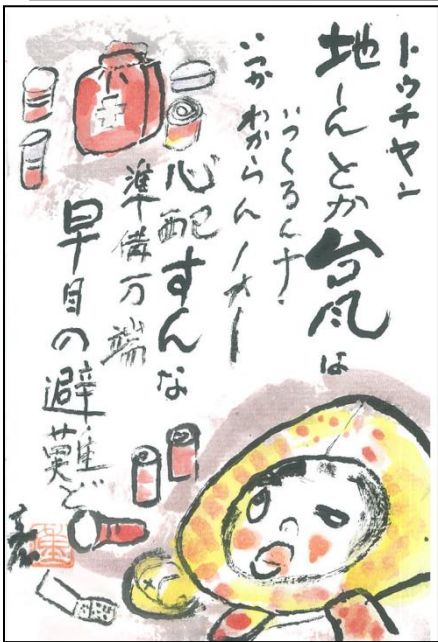 トウチヤン
地しんとか台風は
いつくるんナ・
いつかわからんノオー
心配すんな
準備万端
早目の避難ど